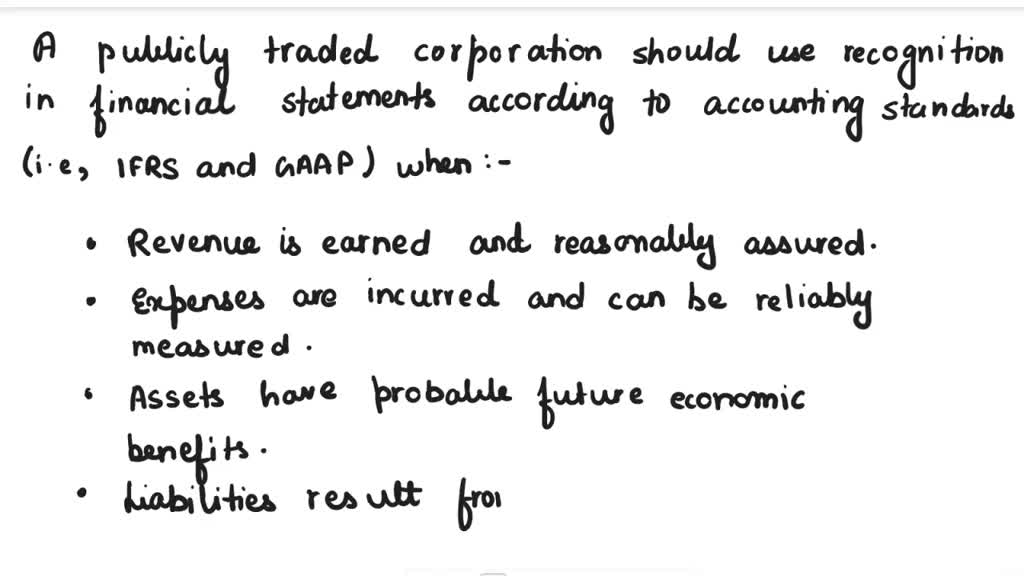 A publicly traded corporation should use recognition
in financial statements according to accounting standards
(i.e, IFRS and GAAP) when :-
• Revenue is earned and reasonably assured.
• Expenses are incurred and can be reliably
measured.
• Assets have probable future economic
benefits.
• Liabilities result from